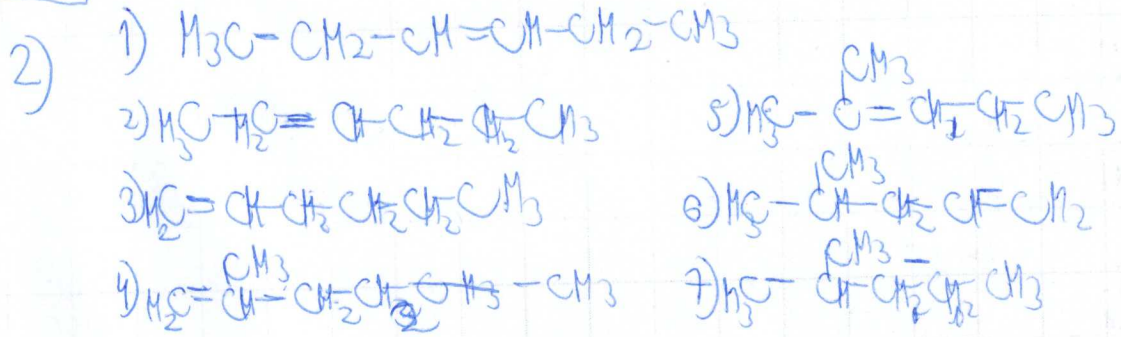 2)
1) H3C-CH2-CH=CH-CH2-CH3
2) H3C-H2C=CH-CH2-CH2-CH3
3) H2C=CH-CH2-CH2-CH2-CH3
CH3
4) H2C=CH-CH2-CH2-CH3
CH3
5) H3C-C=CH2-CH2-CH3
CH3
6) H3C-CH-CH2-CH=CH2
CH3
7) H3C-CH-CH2-CH2-CH3